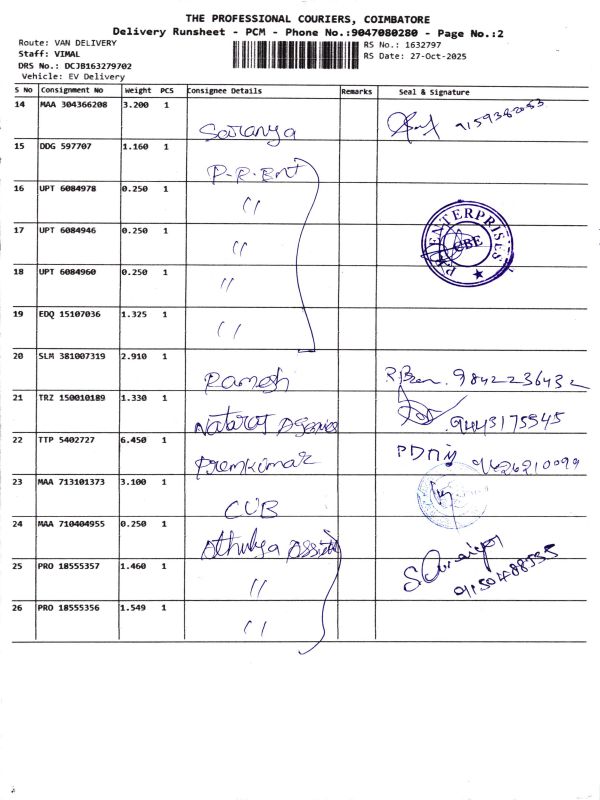 THE PROFESSIONAL COURIERS, COIMBATORE
Delivery Runsheet - PCM - Phone No.:9047080280 - Page No.:2
Route: VAN DELIVERY
Staff: VIMAL
DRS No.: DCJB163279702
Vehicle: EV Delivery
1632797
RS No.: 1632797
RS Date: 27-Oct-2025
S No Consignment No Weight PCS Consignee Details Remarks Seal & Signature
14 MAA 304366208 3.200 1 Saranya
15 DDG 597707 1.160 1 P.R.Ent
16 UPT 6084978 0.250 1 〃
17 UPT 6084946 0.250 1 〃
18 UPT 6084960 0.250 1 〃
19 EDQ 15107036 1.325 1 〃
ENTERPRISES
CBE
20 SLM 381007319 2.910 1 Ramesh 9842236432
21 TRZ 150010189 1.330 1 Nataraj 9443175545
22 TTP 5402727 6.450 1 Premkumar 9626210099
23 MAA 713101373 3.100 1 CUB
24 MAA 710404955 0.250 1 Athulya
25 PRO 18555357 1.460 1 〃
26 PRO 18555356 1.549 1 〃